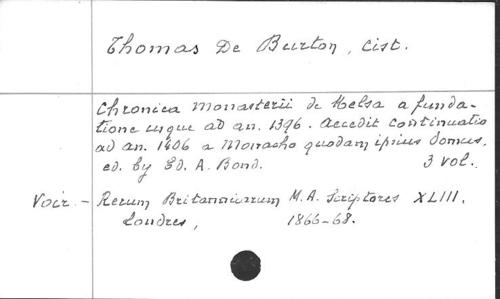 Thomas De Burton, Cist.
Chronica Monasterii de Melsa a funda-
tione usque ad an. 1396. Accedit Continuatio
ad an. 1406 a Monacho quodam ipsius domus.
ed. by Ed. A. Bond. 3 vol.
Voir - Rerum Britannicarum M. A. Scriptores XLIII.
Londres, 1866-68.